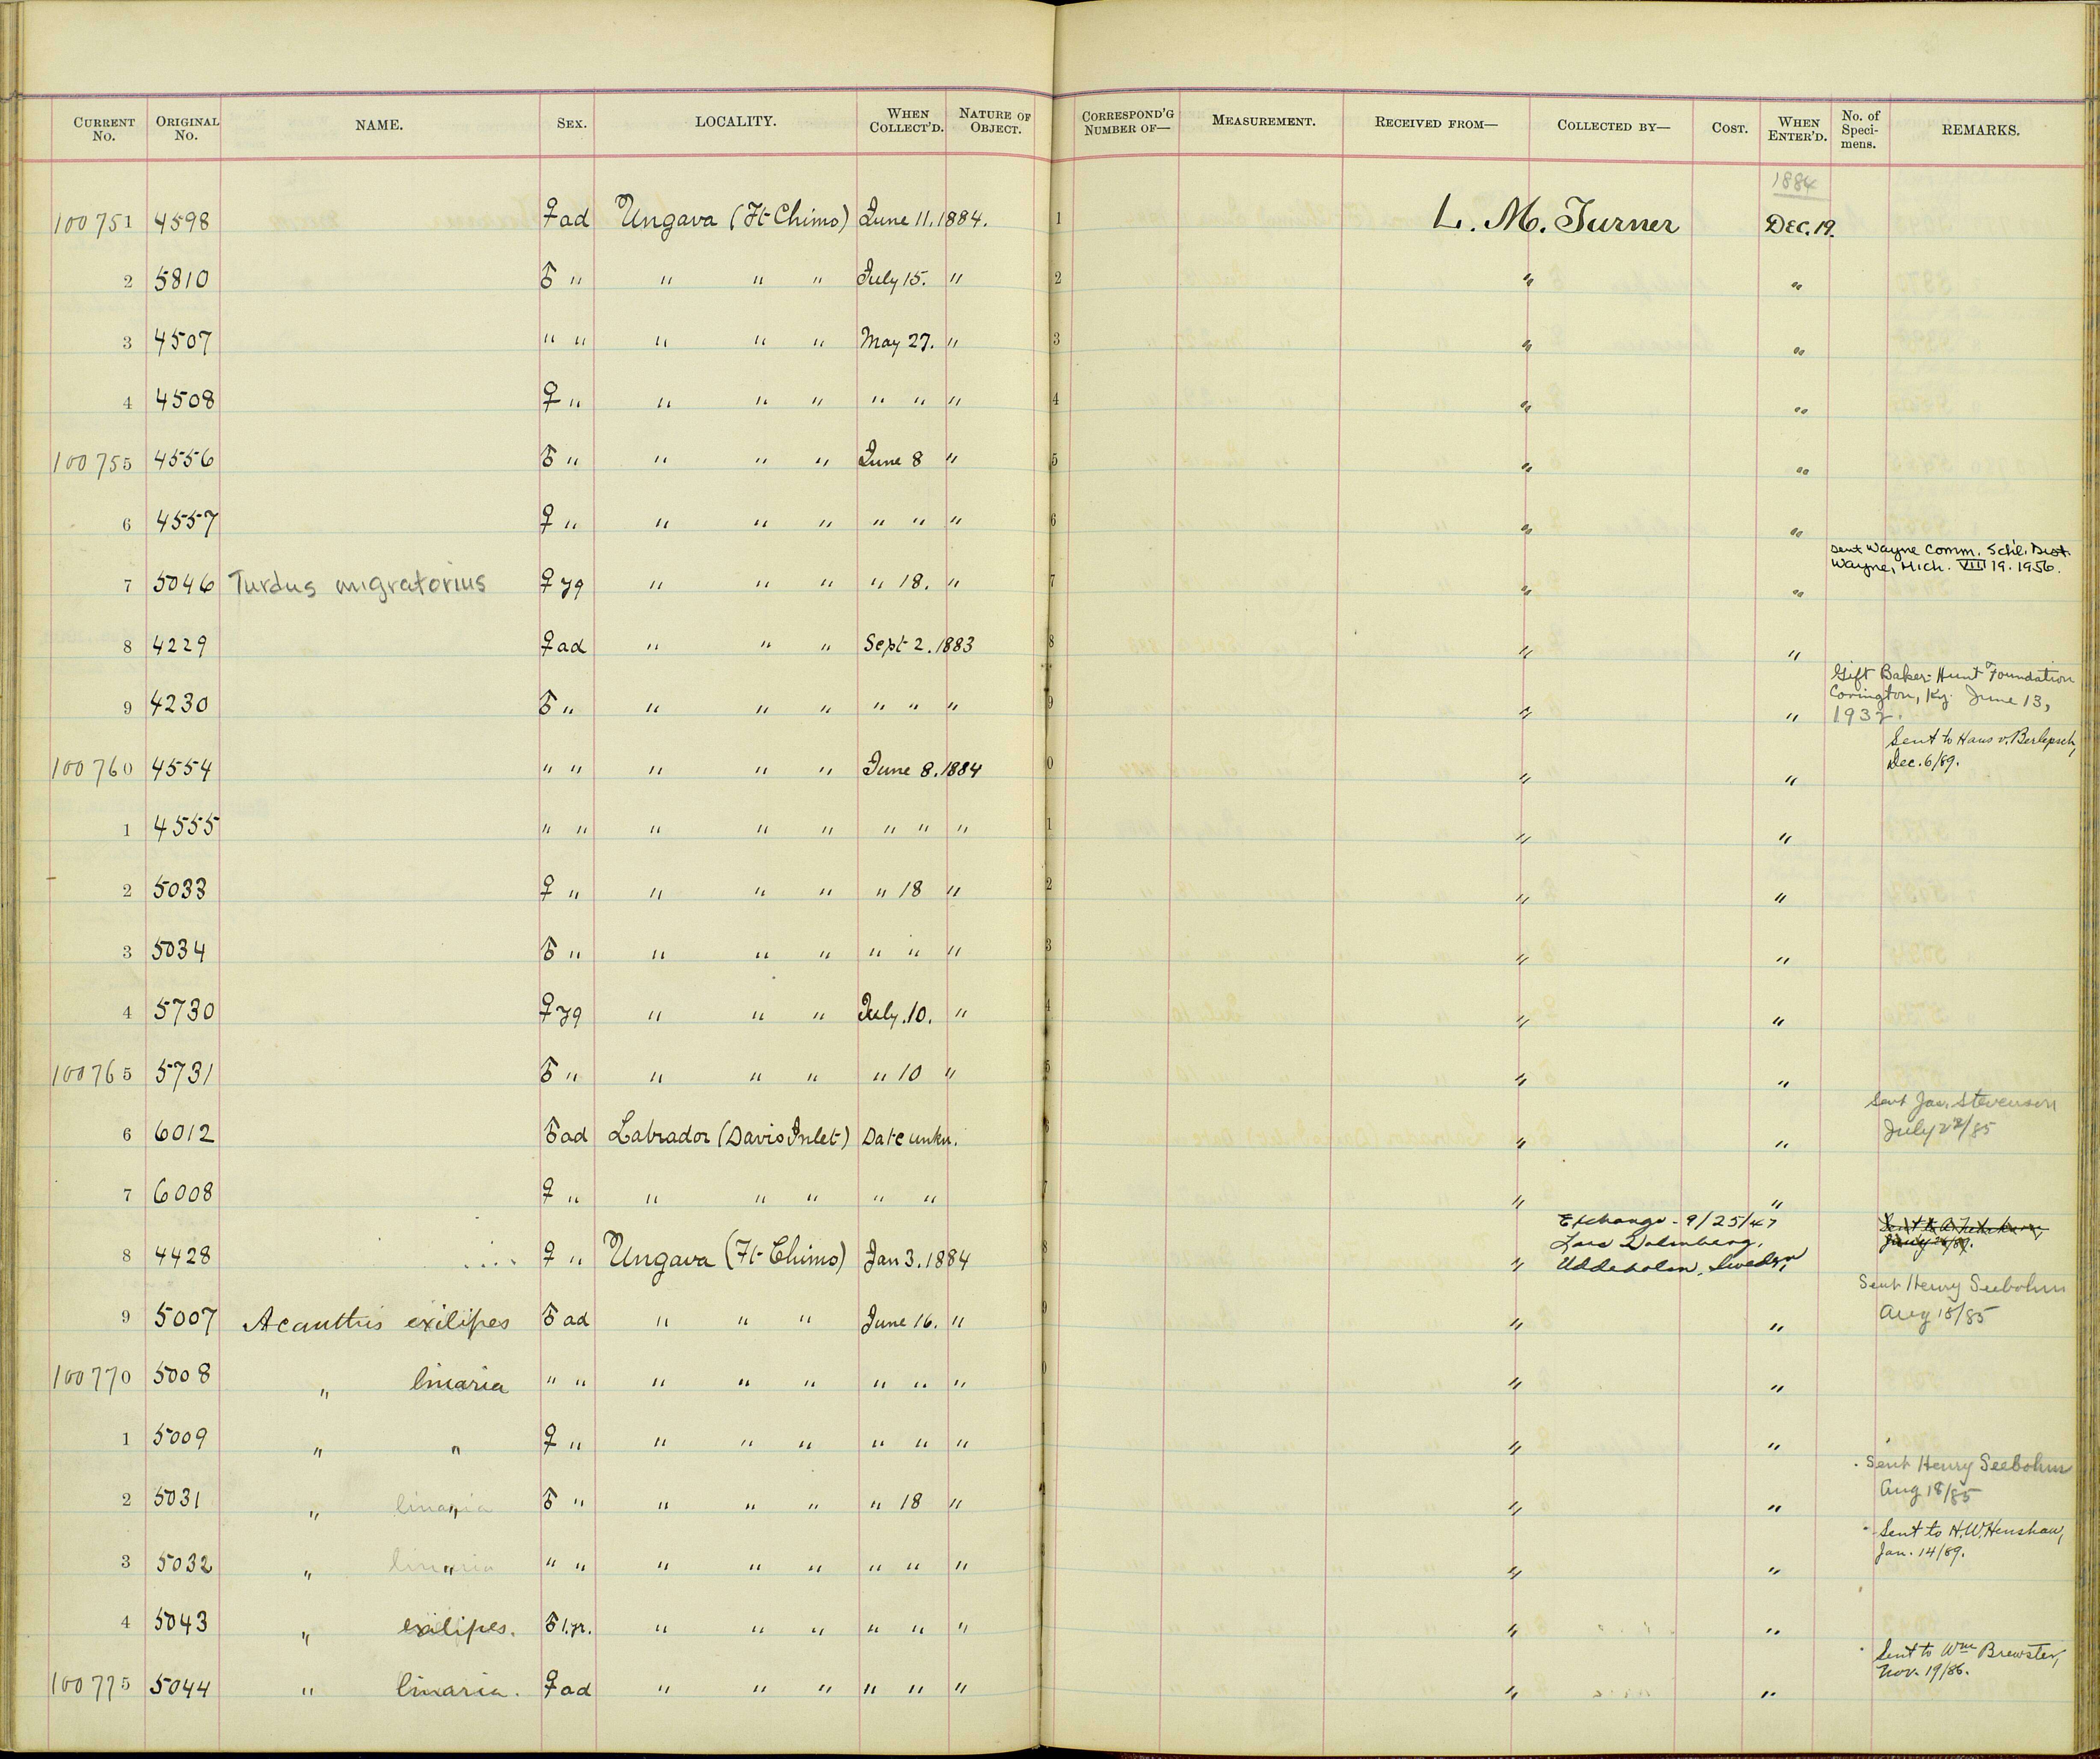 CURRENT No. ORIGINAL No. NAME. SEX. LOCALITY. WHEN COLLECT'D. NATURE OF OBJECT. CORRESPOND'G NUMBER OF— MEASUREMENT. RECEIVED FROM— COLLECTED BY— COST. WHEN ENTER'D. No. of Speci-mens. REMARKS.
1884
100751 4598 ♀ ad Ungava (Ft Chimo) June 11. 1884. 1 L. M. Turner Dec. 19.
2 5810 ♂ " " " " July 15. " 2 " "
3 4507 " " " " " May 27. " 3 " "
4 4508 ♀ " " " " " " " 4 " "
100755 4556 ♂ " " " " June 8 " 5 " "
6 4557 ♀ " " " " " " " 6 " "
sent Wayne Comm. Schl. Dist.
Wayne, Mich. VIII 19. 1956.
7 5046 Turdus migratorius ♀ yg " " " " 18. " 7 " "
8 4229 ♀ ad " " " Sept 2. 1883 8 " "
Gift Baker-Hunt Foundation
Covington, Ky. June 13,
9 4230 ♂ " " " " " " " 9 " " 1932.
Sent to Hans v. Berlepsch,
Dec. 6/89.
100760 4554 " " " " " June 8. 1884 0 " "
1 4555 " " " " " " " " 1 " "
2 5033 ♀ " " " " " 18 " 2 " "
3 5034 ♂ " " " " " " " 3 " "
4 5730 ♀ yg " " " July. 10. " 4 " "
100765 5731 ♂ " " " " " 10 " 5 " "
Sent Jas. Stevenson
July 22/85
6 6012 ♂ ad Labrador (Davis Inlet) Date unkn. 6 " "
7 6008 ♀ " " " " " " 7 " "
Exchange - 9/25/47
8 4428 ♀ " Ungava (Ft Chimo) Jan 3. 1884 8 "
Uddeholm, Sweden
Sent Henry Seebohm
Aug 18/85
9 5007 Acanthis exilipes ♂ ad " " " June 16. " 9 " "
100770 5008 " linaria " " " " " " " " 0 " "
1 5009 " " ♀ " " " " " " " 1 " "
Sent Henry Seebohm
Aug 18/85
2 5031 " linaria " ♂ " " " " " 18 " " "
Sent to H. W. Henshaw,
Jan. 14/89.
3 5032 " linaria " " " " " " " " " " "
4 5043 " exilipes. ♂ 1.yr. " " " " " " " "
Sent to Wm Brewster,
Nov. 19/86.
100775 5044 " linaria. ♀ ad " " " " " " " "